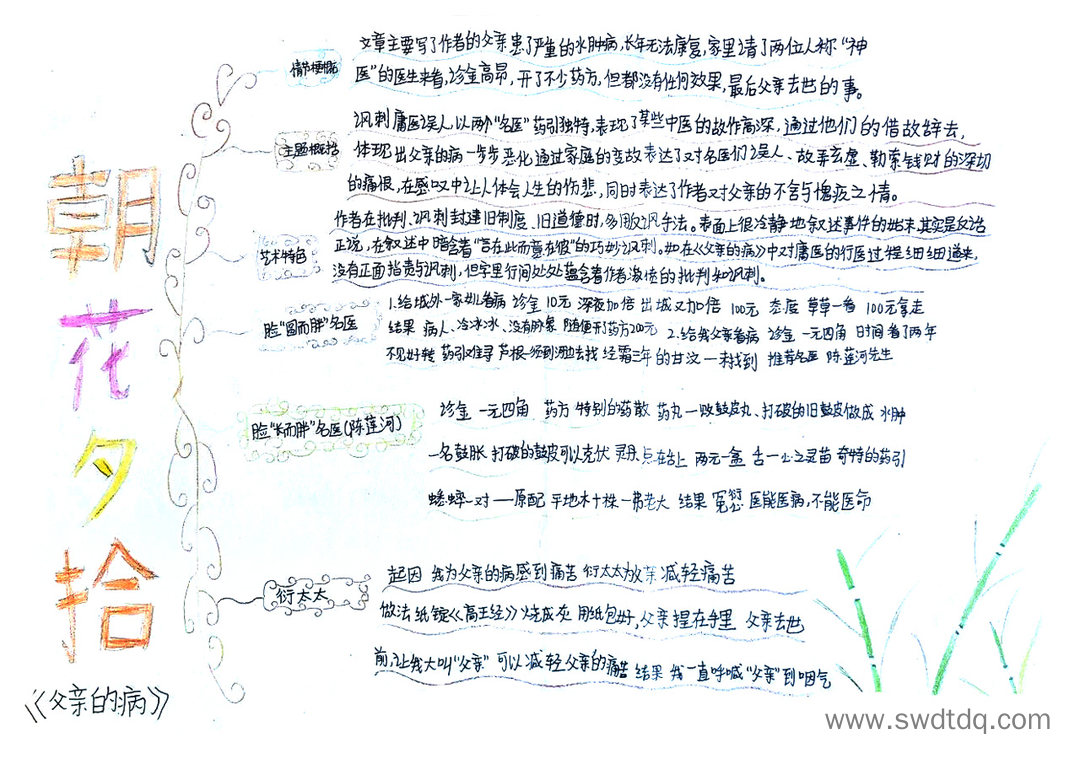 朝花夕拾
《父亲的病》
情节梗概
文章主要写了作者的父亲患了严重的水肿病,长年无法康复,家里请了两位人称“神
医”的医生来看,诊金高昂,开了不少药方,但都没有任何效果,最后父亲去世的事。
主题概括
讽刺庸医误人,以两个“名医”药引独特,表现了某些中医的故作高深,通过他们的借故辞去,
体现出父亲的病一步步恶化,通过家庭的变故表达了对名医们误人、故弄玄虚、勒索钱财的深切
的痛恨,在感叹中让人体会人生的伤悲,同时表达了作者对父亲的不舍与愧疚之情。
艺术特色
作者在批判、讽刺封建旧制度、旧道德时,多用反讽手法。表面上很冷静地叙述事件的始末,其实是反话
正说,在叙述中暗含着“言在此而意在彼”的巧妙讽刺。如在《父亲的病》中对庸医的行医过程细细道来,
没有正面指责与讽刺,但字里行间处处蕴含着作者激愤的批判和讽刺。
脸“圆而胖”名医
1.给城外一家幼儿看病 诊金 10元 深夜加倍 出城又加倍 100元 态度 草草一看 100元拿走
结果 病人、冷冰冰、没有脉象 随便开了药方200元 2.给我父亲看病 诊金 一元四角 时间 看了两年
不见好转 药引难寻 芦根一须到河边去找 经霜三年的甘蔗 一未找到 推荐名医 陈莲河先生
脸“长而胖”名医(陈莲河)
诊金 一元四角 药方 特别的药散 药丸一败鼓皮丸、打破的旧鼓皮做成 水肿
一名鼓胀 打破的鼓皮可以克伏 灵丹 点在舌上 两元一盒 舌一心之灵苗 奇特的药引
蟋蟀一对一一原配 平地木十株一弗老大 结果 冤愆 医能医病,不能医命
衍太太
起因 我为父亲的病感到痛苦 衍太太 减轻痛苦
做法 纸锭《高王经》烧成灰 用纸包好,父亲捏在手里 父亲去世
前,让我大叫“父亲”可以减轻父亲的痛苦 结果 我一直呼喊“父亲”到咽气
www.swdtdq.com